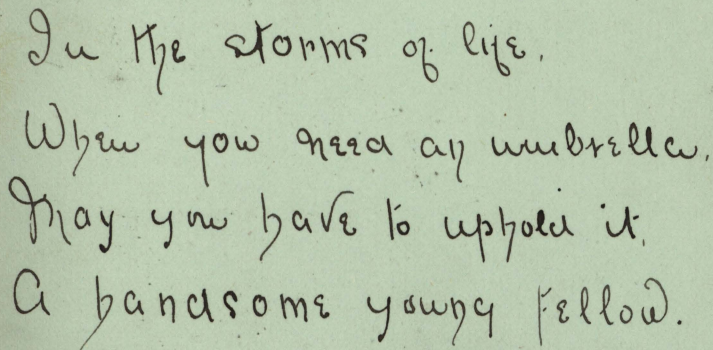 In the storms of life.
When you need an umbrella.
May you have to uphold it.
A handsome young fellow.